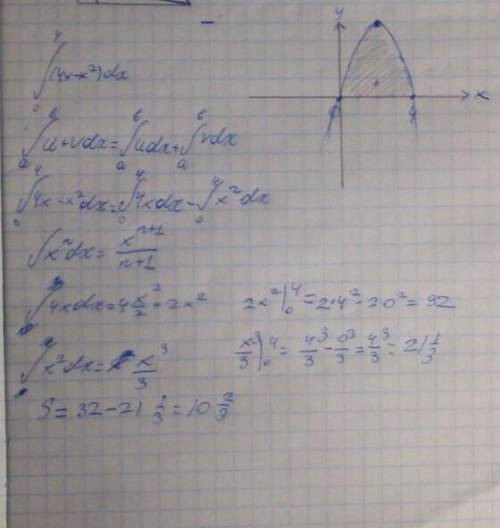 ∫₀⁴(4x-x²)dx
y
x
0
4
∫ₐᵇ u+v dx = ∫ₐᵇ u dx + ∫ₐᵇ v dx
∫₀⁴ 4x-x² dx = ∫₀⁴ 4x dx - ∫₀⁴ x² dx
∫ xⁿ dx = xⁿ⁺¹/n+1
∫ 4x dx = 4 x²/2 = 2x²
2x² |₀⁴ = 2·4² - 2·0² = 32
∫ x² dx = x³/3
x³/3 |₀⁴ = 4³/3 - 0³/3 = 4³/3 = 21 1/3
S = 32 - 21 1/3 = 10 2/3